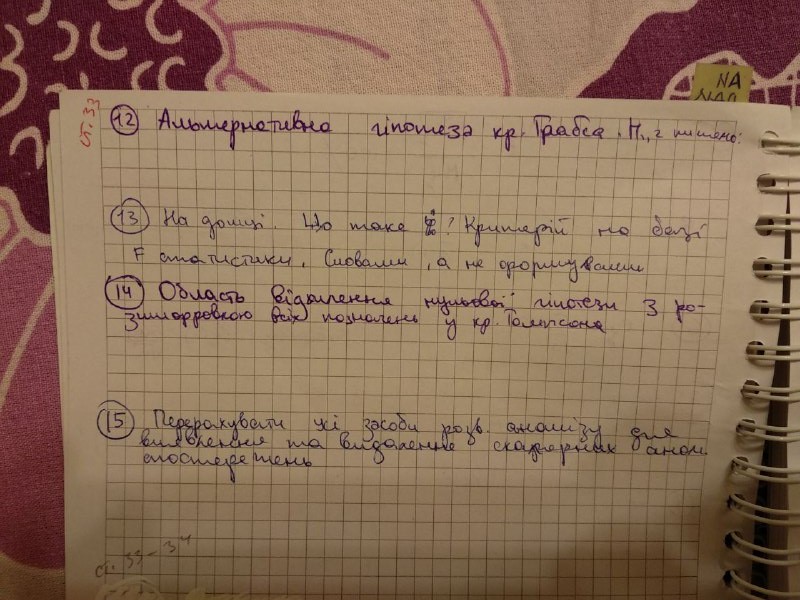 NA
ст. 33
12 Альтернативна гіпотеза кр. Грабса. H₁, г
13 На дошці. Що таке ? Критерій на базі
F статистики. Словами, а не формулами
14 Область відхилення нульової гіпотези з ро-
зшифровкою всіх позначень у кр. Томпсона
15 Перерахувати усі засоби розв. аналізу для
виявлення та видалення скалярних аном.
спостережень
ст. 33-34